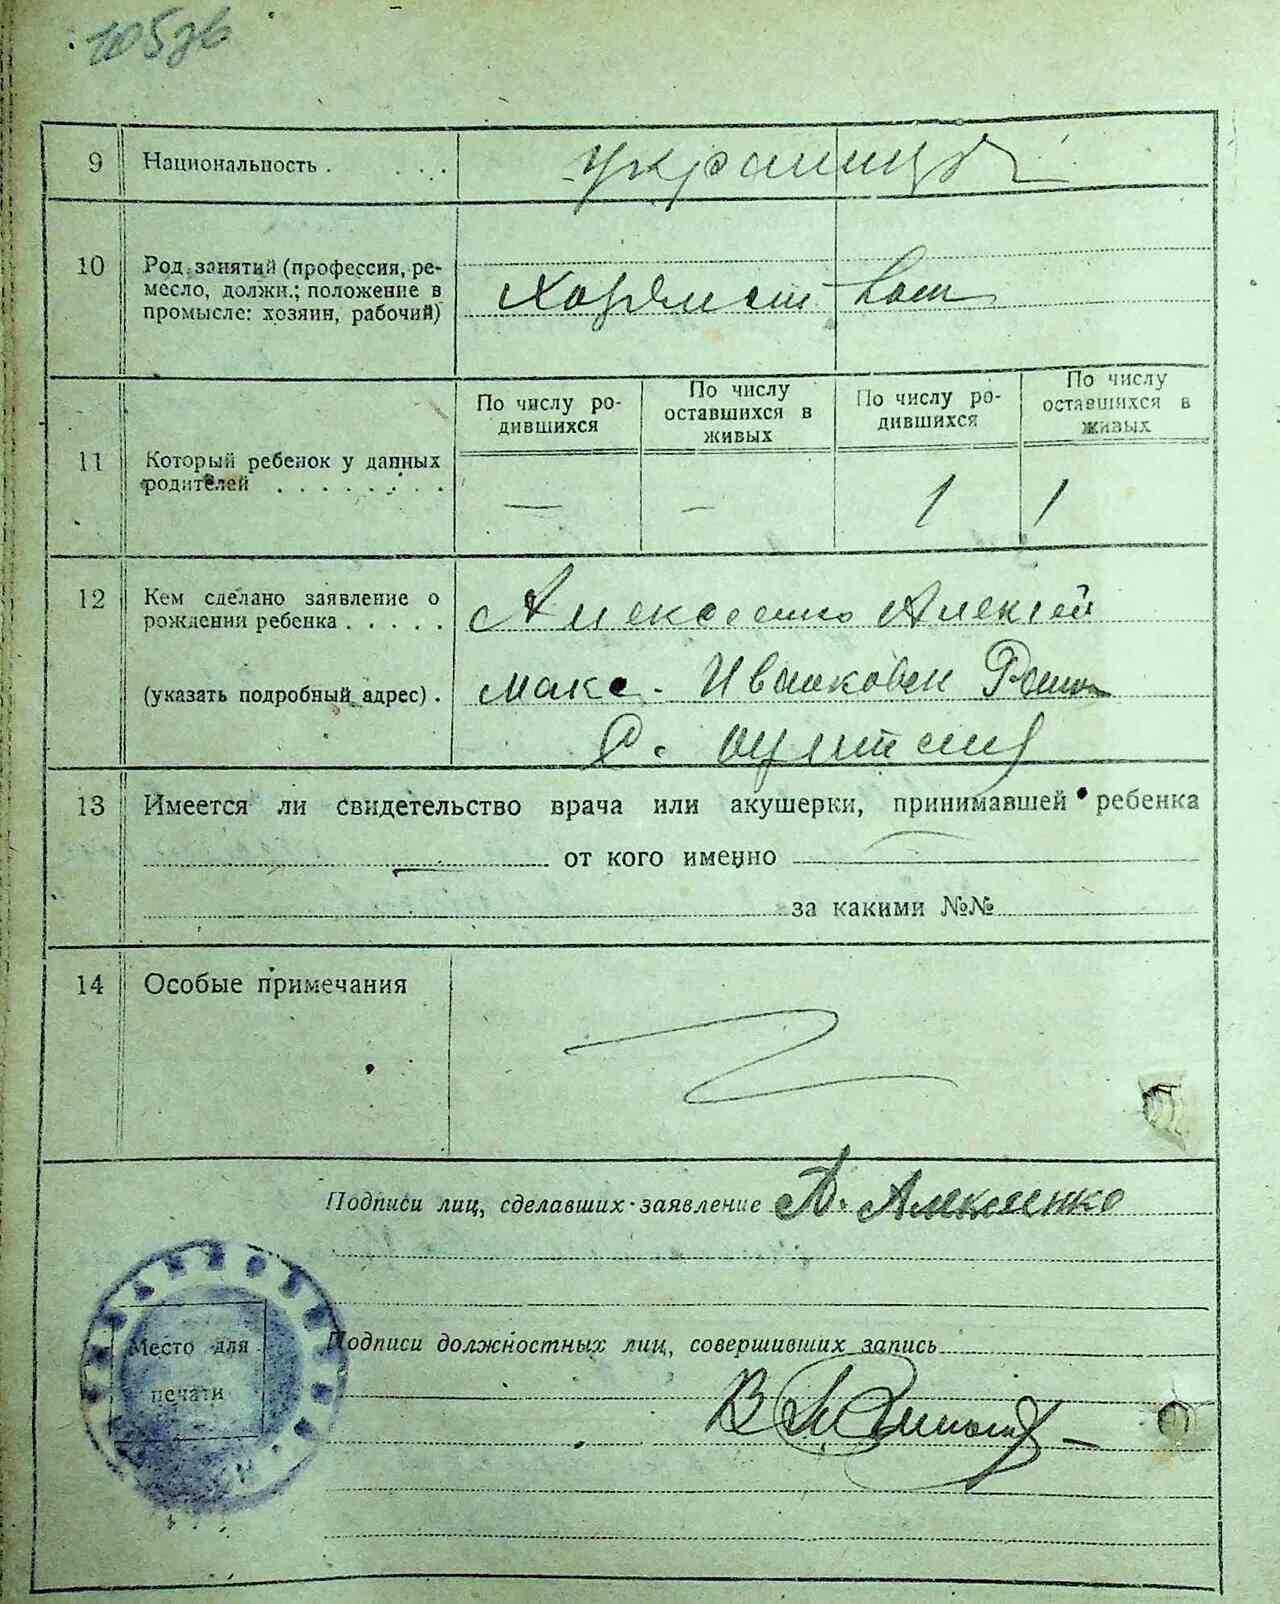 9 Национальность . . . . украинцы
10 Род занятий (профессия, ре-
месло, должн.; положение в
промысле: хозяин, рабочий)
По числу ро-
дившихся
По числу
оставшихся в
живых
По числу ро-
дившихся
По числу
оставшихся в
живых
11 Который ребенок у данных
родителей . . . . . . . . — — 1 1
12 Кем сделано заявление о
рождении ребенка . . . . . Алексеенко Алексей
(указать подробный адрес) . Макс. Ивановск
с.
13 Имеется ли свидетельство врача или акушерки, принимавшей ребенка
— от кого именно —
за какими №№
14 Особые примечания
Подписи лиц, сделавших заявление А. Алексеенко
Подписи должностных лиц, совершивших запись
Место для
печати